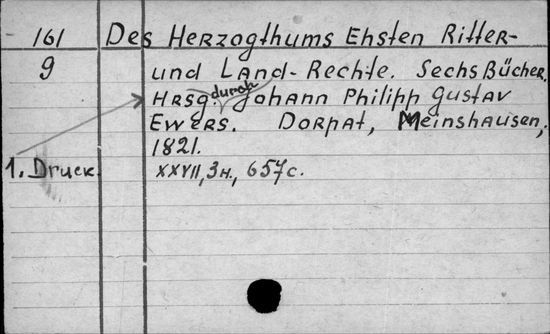 161 Des Herzogthums Ehsten Ritter-
9 und Land-Rechte. Sechs Bücher.
Hrsg. durch Johann Philipp Gustav
Ewers. Dorpat, Meinshausen,
1821.
1. Druck. XXVII, 3н., 657c.